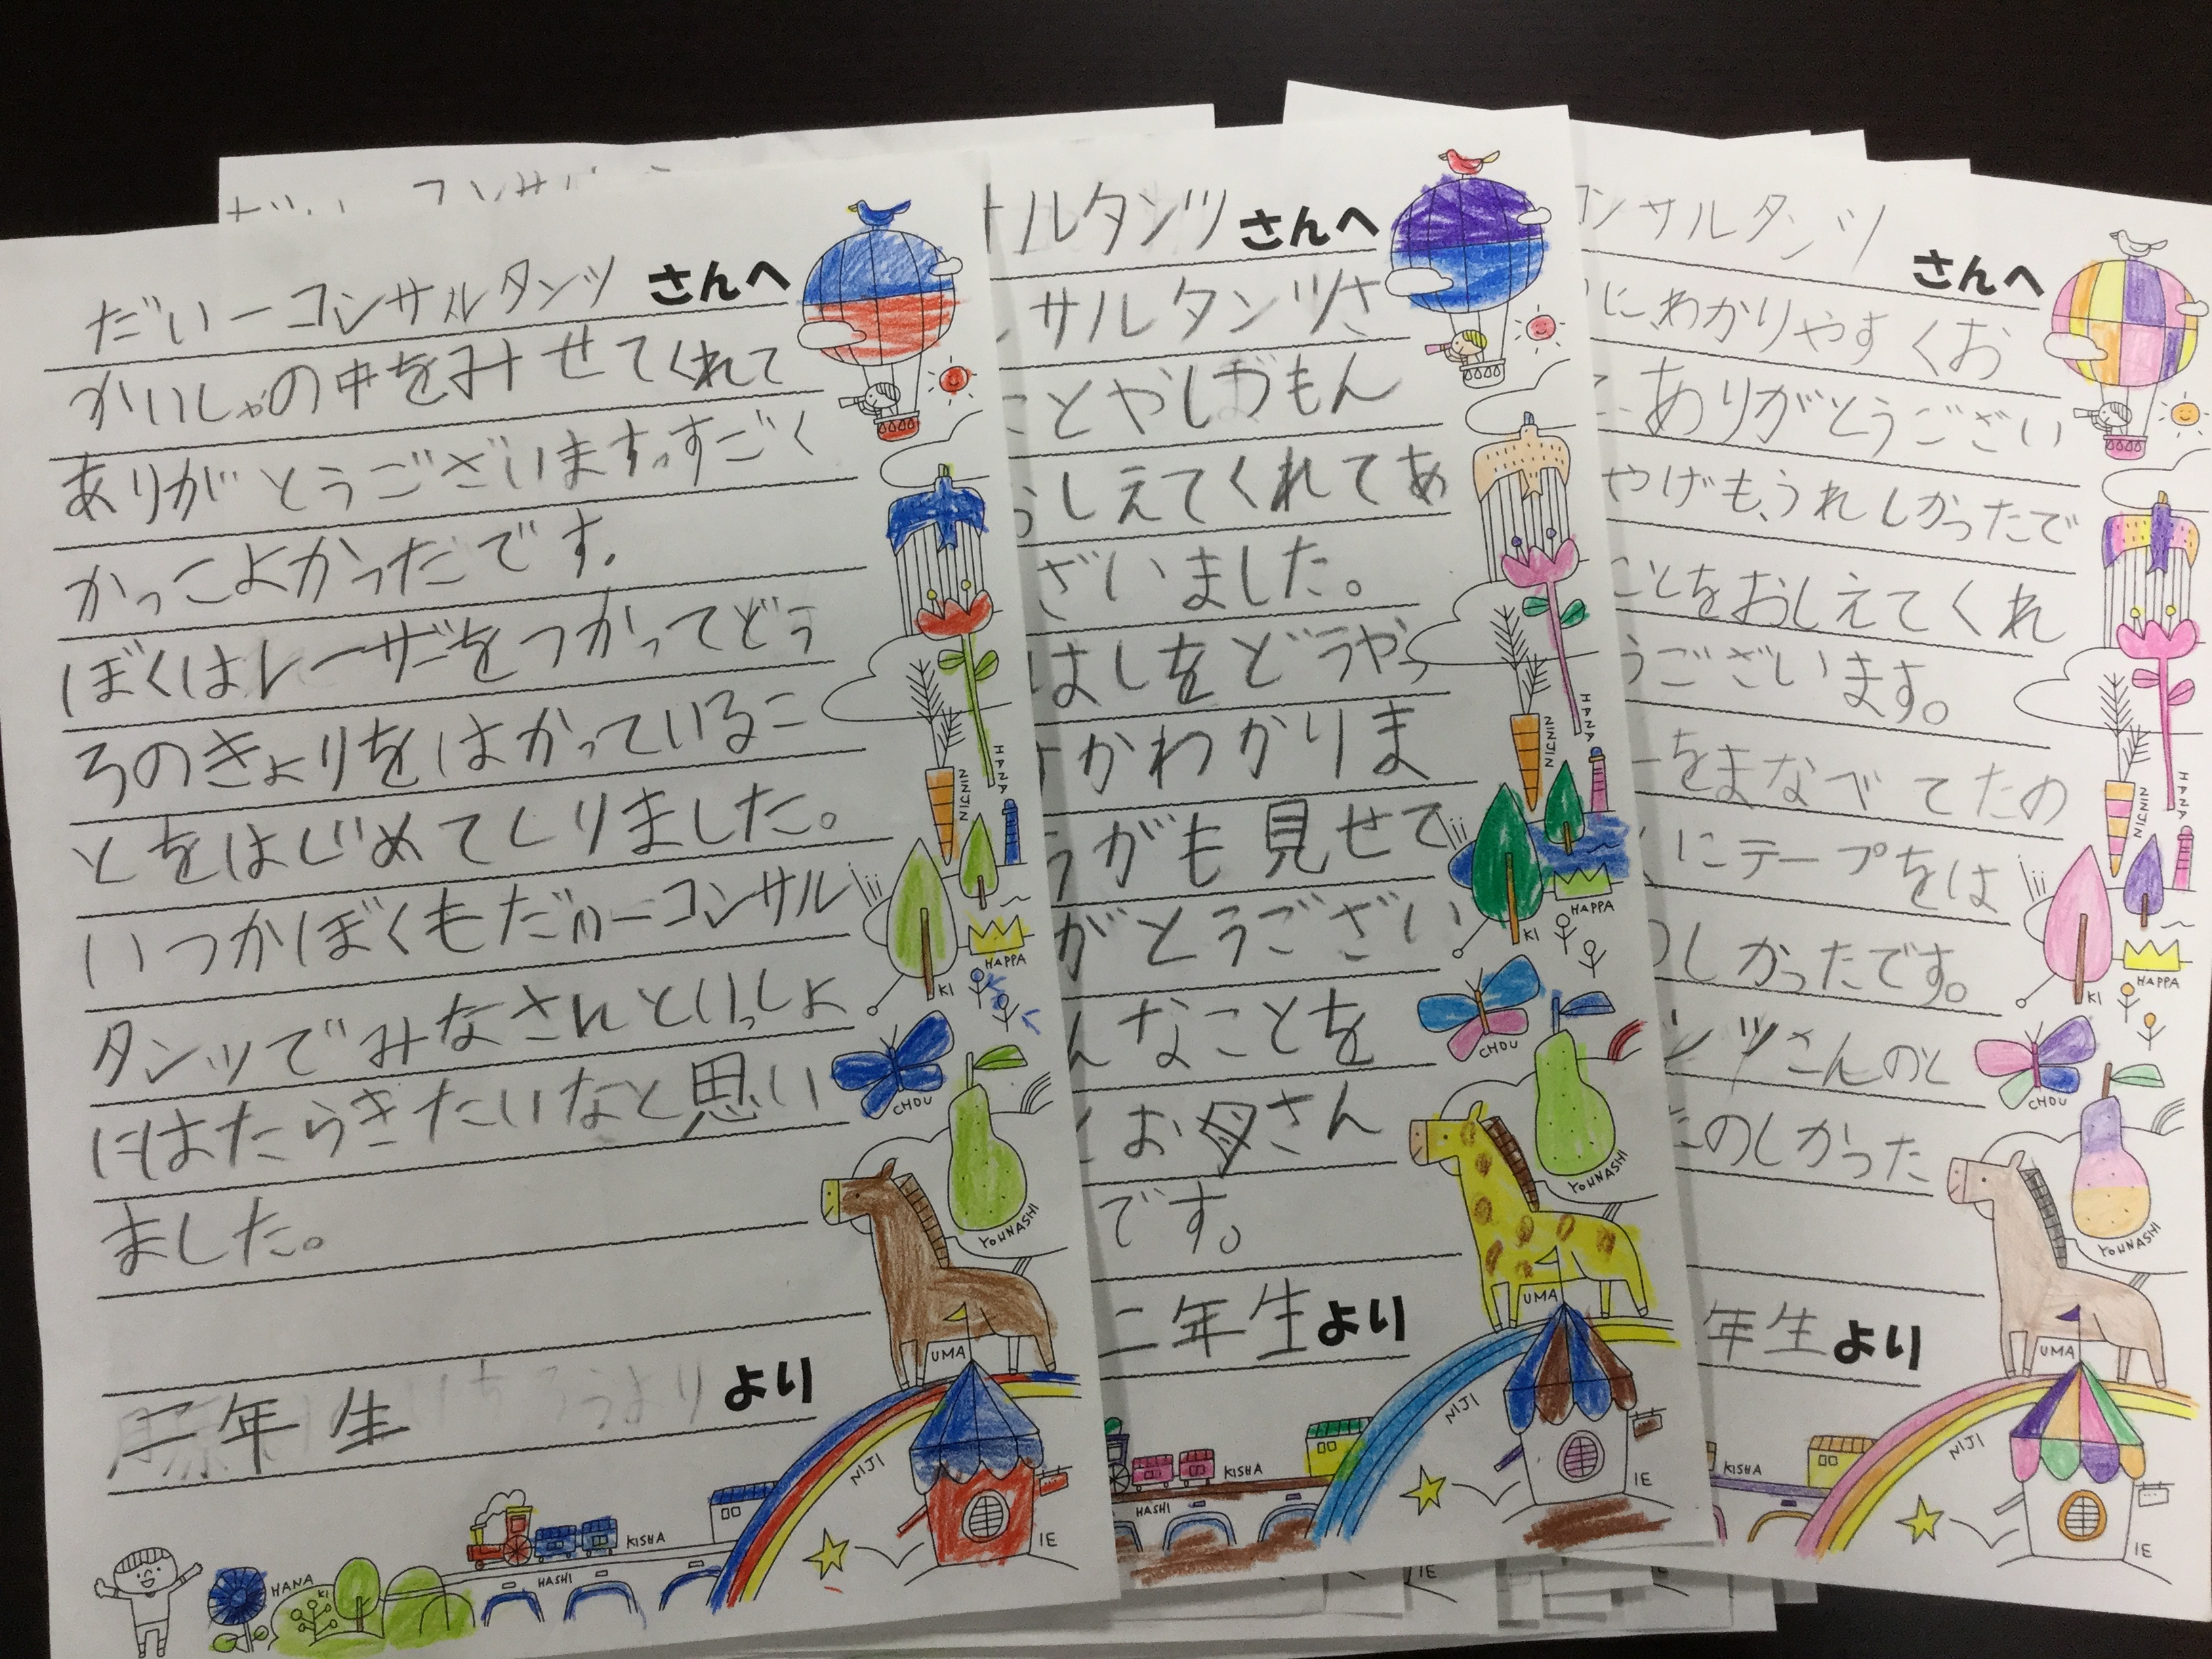 だい一コンサルタンツ さんへ
かいしゃの中をみせてくれて
ありがとうございます。すごく
かっこよかっだです。
ぼくはレーザーをつかってどう
ろのきょりをはかっているこ
とをはじめてしりました。
いつかぼくもだい一コンサル
タンツでみなさんといっしょ
にはたらきたいなと思い
ました。
二年生 より
HANA
NINJIN
KI
HAPPA
CHOU
YOUNASHI
UMA
NIJI
IE
KISHA
HASHI
HANA
KI
ルタンツ さんへ
サルタンツさ
ことやしおもん
しえてくれてあ
ざいました。
はしをどうやっ
かわかりま
うがも見せて
がとうござい
んなことを
とお母さん
です。
二年生 より
HANA
NINJIN
KI
HAPPA
CHOU
YOUNASHI
UMA
NIJI
IE
KISHA
HASHI
コンサルタンツ さんへ
に、わかりやすくお
ありがとうござい
やげも、うれしかったで
ことをおしえてくれ
うございます。
ーをまなべてたの
にテープをは
のしかったです。
ンツさんのと
たのしかった
年生 より
HANA
NINJIN
KI
HAPPA
CHOU
YOUNASHI
UMA
NIJI
IE
KISHA
IE